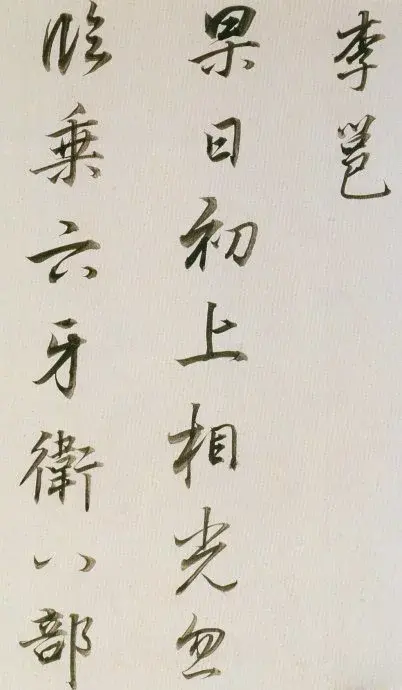 李邕
杲日初上相光忽
临乘六牙衛八部